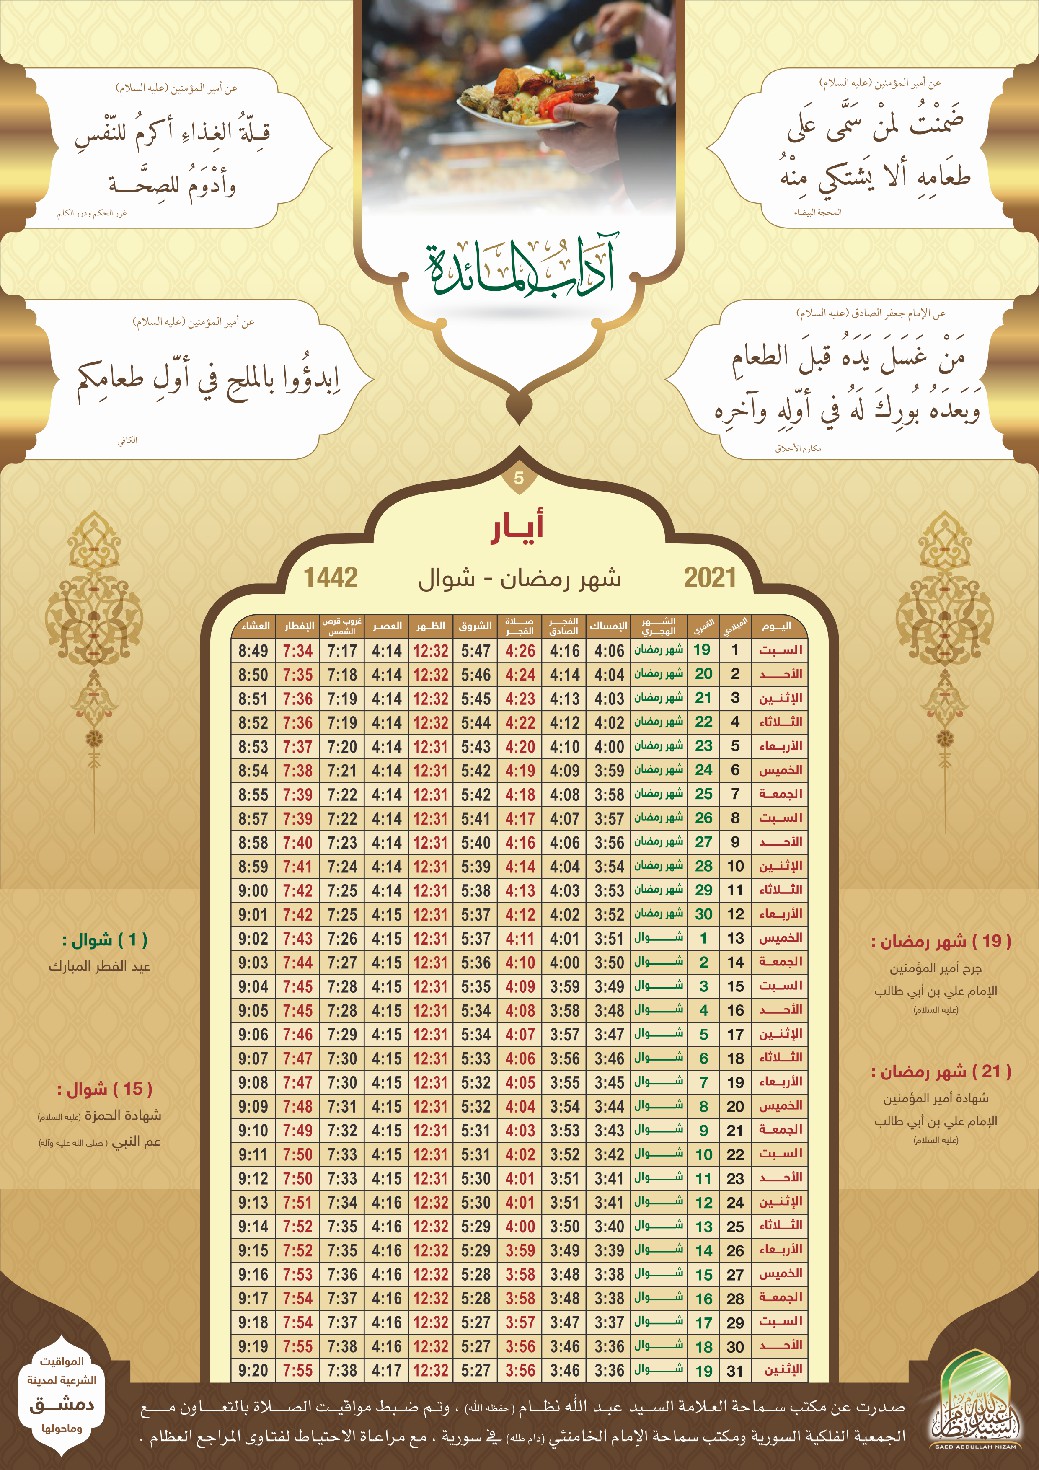 عن أمير المؤمنين (عليه السلام)
ضَمنْتُ لمنْ سَمَّى عَلَى
طعَامِهِ ألا يَشتكي مِنْهُ
المحجة البيضاء
عن أمير المؤمنين (عليه السلام)
قِلّةُ الغِذاءِ أكرمُ للنّفْسِ
وأدْوَمُ للصِحَّـــة
غرر الحكم ودرر الكلم
آدَابُ المَائدة
عن الإمام جعفر الصادق (عليه السلام)
مَنْ غَسَلَ يَدَهُ قبلَ الطعامِ
وَبَعدَهُ بُورِكَ لَهُ في أوّلِهِ وآخرِه
مكارم الأخلاق
عن أمير المؤمنين (عليه السلام)
اِبدؤُوا بالملحِ في أوّلِ طعامِكم
الكافي
5
أيـار
2021 شهر رمضان - شوال 1442
اليـوم الميلادي القمري الشـــهر الهجري الإمساك الفجــر الصادق صــلاة الفجـر الشروق الظـهر العصـر غروب قرص الشمس الإفطار العشاء
السـبت 1 19 شهر رمضان 4:06 4:16 4:26 5:47 12:32 4:14 7:17 7:34 8:49
الأحــد 2 20 شهر رمضان 4:04 4:14 4:24 5:46 12:32 4:14 7:18 7:35 8:50
الإثنـين 3 21 شهر رمضان 4:03 4:13 4:23 5:45 12:32 4:14 7:19 7:36 8:51
الثـلاثاء 4 22 شهر رمضان 4:02 4:12 4:22 5:44 12:32 4:14 7:19 7:36 8:52
الأربـعاء 5 23 شهر رمضان 4:00 4:10 4:20 5:43 12:31 4:14 7:20 7:37 8:53
الخميس 6 24 شهر رمضان 3:59 4:09 4:19 5:42 12:31 4:14 7:21 7:38 8:54
الجمعـة 7 25 شهر رمضان 3:58 4:08 4:18 5:42 12:31 4:14 7:22 7:39 8:55
السـبت 8 26 شهر رمضان 3:57 4:07 4:17 5:41 12:31 4:14 7:22 7:39 8:57
الأحــد 9 27 شهر رمضان 3:56 4:06 4:16 5:40 12:31 4:14 7:23 7:40 8:58
الإثنـين 10 28 شهر رمضان 3:54 4:04 4:14 5:39 12:31 4:14 7:24 7:41 8:59
الثـلاثاء 11 29 شهر رمضان 3:53 4:03 4:13 5:38 12:31 4:14 7:25 7:42 9:00
الأربـعاء 12 30 شهر رمضان 3:52 4:02 4:12 5:37 12:31 4:15 7:25 7:42 9:01
الخميس 13 1 شـــوال 3:51 4:01 4:11 5:37 12:31 4:15 7:26 7:43 9:02
الجمعـة 14 2 شـــوال 3:50 4:00 4:10 5:36 12:31 4:15 7:27 7:44 9:03
السـبت 15 3 شـــوال 3:49 3:59 4:09 5:35 12:31 4:15 7:28 7:45 9:04
الأحــد 16 4 شـــوال 3:48 3:58 4:08 5:34 12:31 4:15 7:28 7:45 9:05
الإثنـين 17 5 شـــوال 3:47 3:57 4:07 5:34 12:31 4:15 7:29 7:46 9:06
الثـلاثاء 18 6 شـــوال 3:46 3:56 4:06 5:33 12:31 4:15 7:30 7:47 9:07
الأربـعاء 19 7 شـــوال 3:45 3:55 4:05 5:32 12:31 4:15 7:30 7:47 9:08
الخميس 20 8 شـــوال 3:44 3:54 4:04 5:32 12:31 4:15 7:31 7:48 9:09
الجمعـة 21 9 شـــوال 3:43 3:53 4:03 5:31 12:31 4:15 7:32 7:49 9:10
السـبت 22 10 شـــوال 3:42 3:52 4:02 5:31 12:31 4:15 7:33 7:50 9:11
الأحــد 23 11 شـــوال 3:41 3:51 4:01 5:30 12:31 4:15 7:33 7:50 9:12
الإثنـين 24 12 شـــوال 3:41 3:51 4:01 5:30 12:32 4:16 7:34 7:51 9:13
الثـلاثاء 25 13 شـــوال 3:40 3:50 4:00 5:29 12:32 4:16 7:35 7:52 9:14
الأربـعاء 26 14 شـــوال 3:39 3:49 3:59 5:29 12:32 4:16 7:35 7:52 9:15
الخميس 27 15 شـــوال 3:38 3:48 3:58 5:28 12:32 4:16 7:36 7:53 9:16
الجمعـة 28 16 شـــوال 3:38 3:48 3:58 5:28 12:32 4:16 7:37 7:54 9:17
السـبت 29 17 شـــوال 3:37 3:47 3:57 5:27 12:32 4:16 7:37 7:54 9:18
الأحــد 30 18 شـــوال 3:36 3:46 3:56 5:27 12:32 4:16 7:38 7:55 9:19
الإثنـين 31 19 شـــوال 3:36 3:46 3:56 5:27 12:32 4:17 7:38 7:55 9:20
( 19 ) شهر رمضان :
جرح أمير المؤمنين
الإمام علي بن أبي طالب
(عليه السلام)
( 21 ) شهر رمضان :
شهادة أمير المؤمنين
الإمام علي بن أبي طالب
(عليه السلام)
( 1 ) شوال :
عيد الفطر المبارك
( 15 ) شوال :
شهادة الحمزة (عليه السلام)
عم النبي ( صلى الله عليه وآله)
صدرت عن مكتب سماحة العلامة السيد عبد الله نظـام (حفظه الله) ، وتم ضبط مواقيت الصـلاة بالتعـاون مـع
الجمعية الفلكية السورية ومكتب سماحة الإمام الخامنئي (دام ظله) في سورية ، مع مراعاة الاحتياط لفتاوى المراجع العظام .
المواقيت
الشرعية لمدينة
دمشـق
وماحولها
السيد عبد الله نظام
SAED ABDULLAH NIZAM